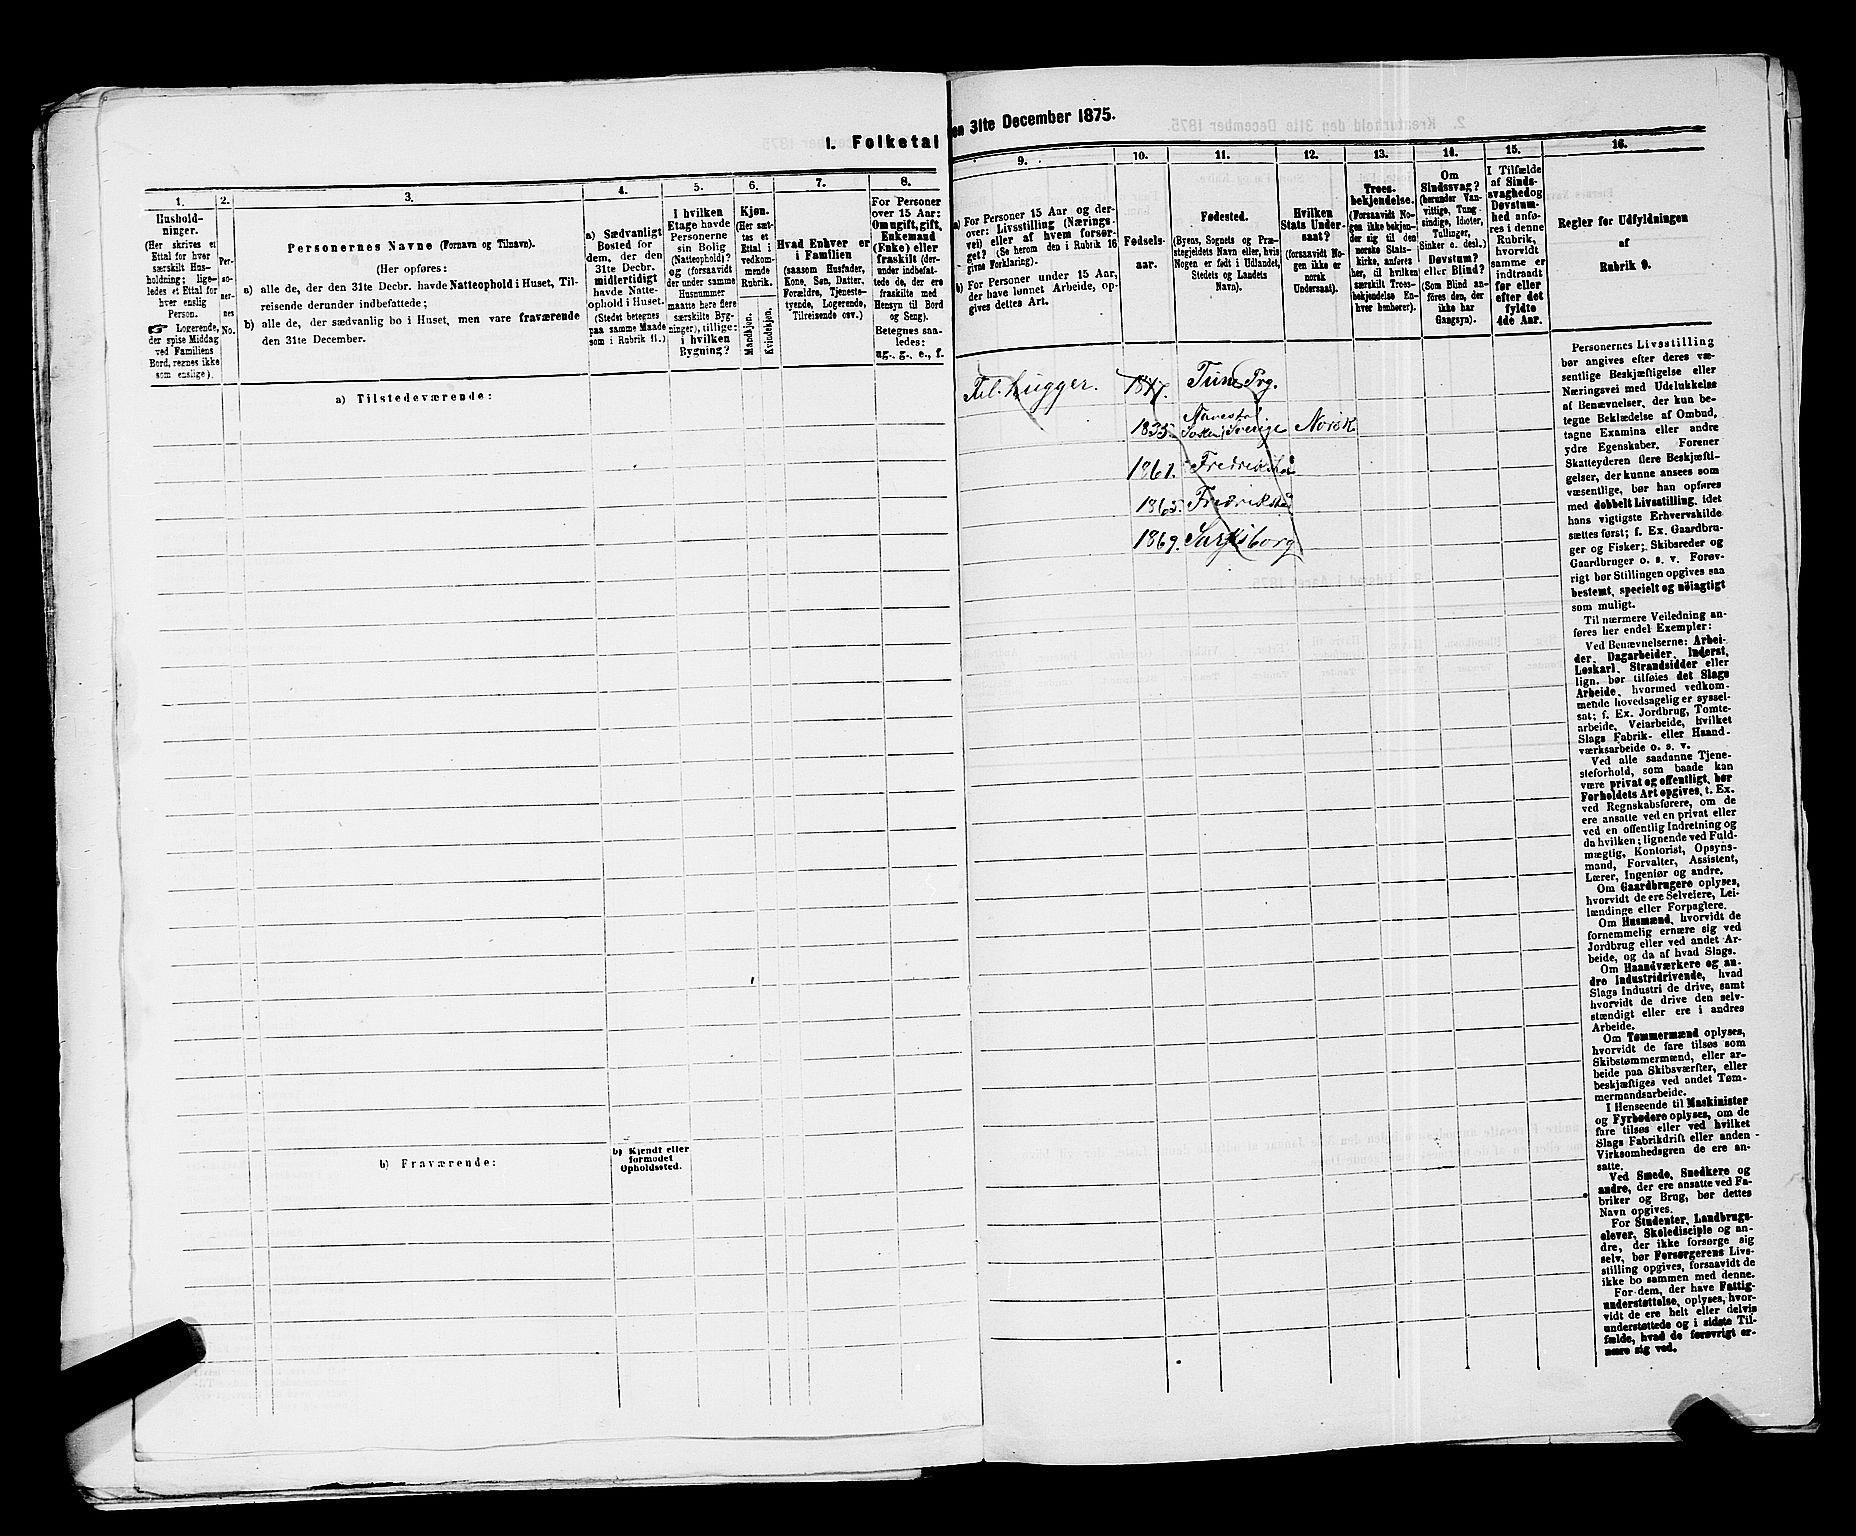 1. Folketal
den 31te December 1875.
1.
2.
3.
4.
5.
6.
7.
8.
Hushold-
ninger.
(Her skrives et
Ettal for hver
særskilt Hus-
holdning; lige-
ledes et Ettal for
hver enslig
Person.
☞ Logerende,
der spise Middag
ved Familiens
Bord, regnes ikke
som enslige).
Per-
so-
ner-
nes
No.
Personernes Navne (Fornavn og Tilnavn).
(Her opføres:
a) alle de, der den 31te Decbr. havde Natteophold i Huset, Til-
reisende derunder indbefattede;
b) alle de, der sædvanlig bo i Huset, men vare fraværende
den 31te December.
a) Sædvanligt
Bosted for
dem, der den
31te Decbr.
midlertidigt
havde Natte-
ophold i Huset.
(Stedet betegnes
paa samme Maade
som i Rubrik 11.)
I hvilken
Etage havde
Personerne
sin Bolig
(Natteophold)?
og (forsaavidt
der under samme
Husnummer
maatte høre flere
særskilte Byg-
ninger), tillige:
i hvilken
Bygning?
Kjøn.
(Her sæt-
tes et
Ettal i
vedkom-
mende
Rubrik.
Mandkjøn.
Kvindekjøn.
Hvad Enhver er
i Familien
(saasom Husfader,
Kone, Søn, Datter,
Forældre, Tjeneste-
tyende, Logerende,
Tilreisende osv.)
For Personer
over 15 Aar:
Om ugift, gift,
Enkemand
(Enke) eller
fraskilt (der-
under indbefat-
tede de, der ere
fraskilte med
Hensyn til Bord
og Seng).
Betegnes saa-
ledes:
ug., g., e., f.
a) Tilstedeværende:
b) Fraværende:
b) Kjendt eller
formodet
Opholdssted.
9.
10.
11.
12.
13.
14.
15.
16.
a) For Personer 15 Aar og der-
over: Livsstilling (Nærings-
vei) eller af hvem forsør-
get? (Se herom den i Rubrik 16
givne Forklaring).
b) For Personer under 15 Aar,
der have lønnet Arbeide, op-
gives dettes Art.
Fødsels-
aar.
Fødested.
(Byens, Sognets og Præ-
stegjeldets Navn eller, hvis
Nogen er født i Udlandet,
Stedets og Landets
Navn).
Hvilken
Stats Under-
saat?
(forsaavidt No-
gen ikke er
norsk
Undersaat).
Troes-
bekjendelse.
(Forsaavidt No-
gen ikke bekjen-
der sig til den
norske Stats-
kirke, anføres
her, til hvilken
særskilt Troes-
bekjendelse En-
hver henhører).
Om
Sindssvag?
(herunder Van-
vittige, Tung-
sindige, Idioter,
Tullinger,
Sinker o. desl.)
Døvstum?
eller Blind?
(Som Blind an-
føres den, der
ikke har
Gangsyn).
I Tilfælde
af Sinds-
svaghed og
Døvstum-
hed anfø-
res i denne
Rubrik,
hvorvidt
samme er
indtraadt
før eller
efter det
fyldte
4de Aar.
Regler for Udfyldningen
af
Rubrik 9.
Filhugger. 1847. Tune Prg.
1835. Sverige Norsk
1861. Fredrikstad
1865. Fredrikstad
1869. Sarpsborg
Personernes Livsstilling
bør angives efter deres væ-
sentlige Beskjæftigelse eller
Næringsvei med Udelukkelse
af Benævnelser, der kun be-
tegne Beklædelse af Ombud,
tagne Examina eller andre
ydre Egenskaber. Forener
Skatteyderen flere Beskjæfti-
gelser, der kunne ansees som
væsentlige, bør han opføres
med dobbelt Livsstilling, idet
hans vigtigste Erhvervskilde
sættes først; f. Ex. Gaardbru-
ger og Fisker; Skibsreder og
Gaardbruger o. s. v. Forøv-
rigt bør Stillingen opgives saa
bestemt, specielt og nøiagtigt
som muligt.
Til nærmere Veiledning an-
føres her endel Exempler:
Ved Benævnelserne: Arbei-
der, Dagarbeider, Inderst,
Løskarl, Strandsidder eller
lign. bør tilføies det Slags
Arbeide, hvormed vedkom-
mende hovedsagelig er syssel-
sat; f. Ex. Jordbrug, Tomte-
arbeide, Veiarbeide, hvilket
Slags Fabrik- eller Haand-
værksarbeide o. s. v.
Ved alle saadanne Tjene-
steforhold, som baade kan
være privat og offentligt, bør
Forholdets Art opgives, t. Ex.
ved Regnskabsførere, om de
ere ansatte ved en privat eller
ved en offentlig Indretning og
da hvilken; lignende ved Fuld-
mægtig, Kontorist, Opsyns-
mand, Forvalter, Assistent,
Lærer, Ingeniør og andre.
Om Gaardbrugere oplyses,
hvorvidt de ere Selveiere, Lei-
lændinge eller Forpagtere.
Om Husmænd, hvorvidt de
fornemmelig ernære sig ved
Jordbrug eller ved andet Ar-
beide, og da af hvad Slags.
Om Haandværkere og an-
dre Industridrivende, hvad
Slags Industri de drive, samt
hvorvidt de drive den selv-
stændigt eller ere i andres
Arbeide.
Om Tømmermænd oplyses,
hvorvidt de fare tilsøs som
Skibstømmermænd, eller ar-
beide paa Skibsværfter, eller
beskjæftiges ved andet Tøm-
mermandsarbeide.
I Henseende til Maskinister
og Fyrbødere oplyses, om de
fare tilsøs eller ved hvilket
Slags Fabrikdrift eller anden
Virksomhedsgren de ere an-
satte.
Ved Smede, Snedkere og
andre, der ere ansatte ved Fa-
briker og Brug, bør dettes
Navn opgives.
For Studenter, Landbrugs-
elever, Skoledisciple og an-
dre, der ikke forsørge sig
selv, bør Forsørgerens Livs-
stilling opgives, forsaavidt de
ikke bo sammen med denne.
For dem, der have Fattig-
understøttelse, oplyses, hvor-
vidt de ere helt eller delvis
understøttede og i sidste Til-
fælde, hvad de forøvrigt er-
nære sig ved.